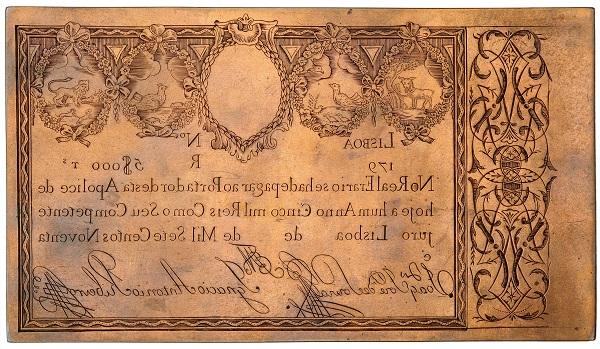 LISBOA Nº
179 R 5$000 Tˢ
No Real Erario se ha de pagar ao Portador desta Apolice de
hoje a hum Anno Cinco mil Reis Com o Seu Competente
juro Lisboa de de Mil Sete Centos Noventa
Ignacio Antonio Ribeiro